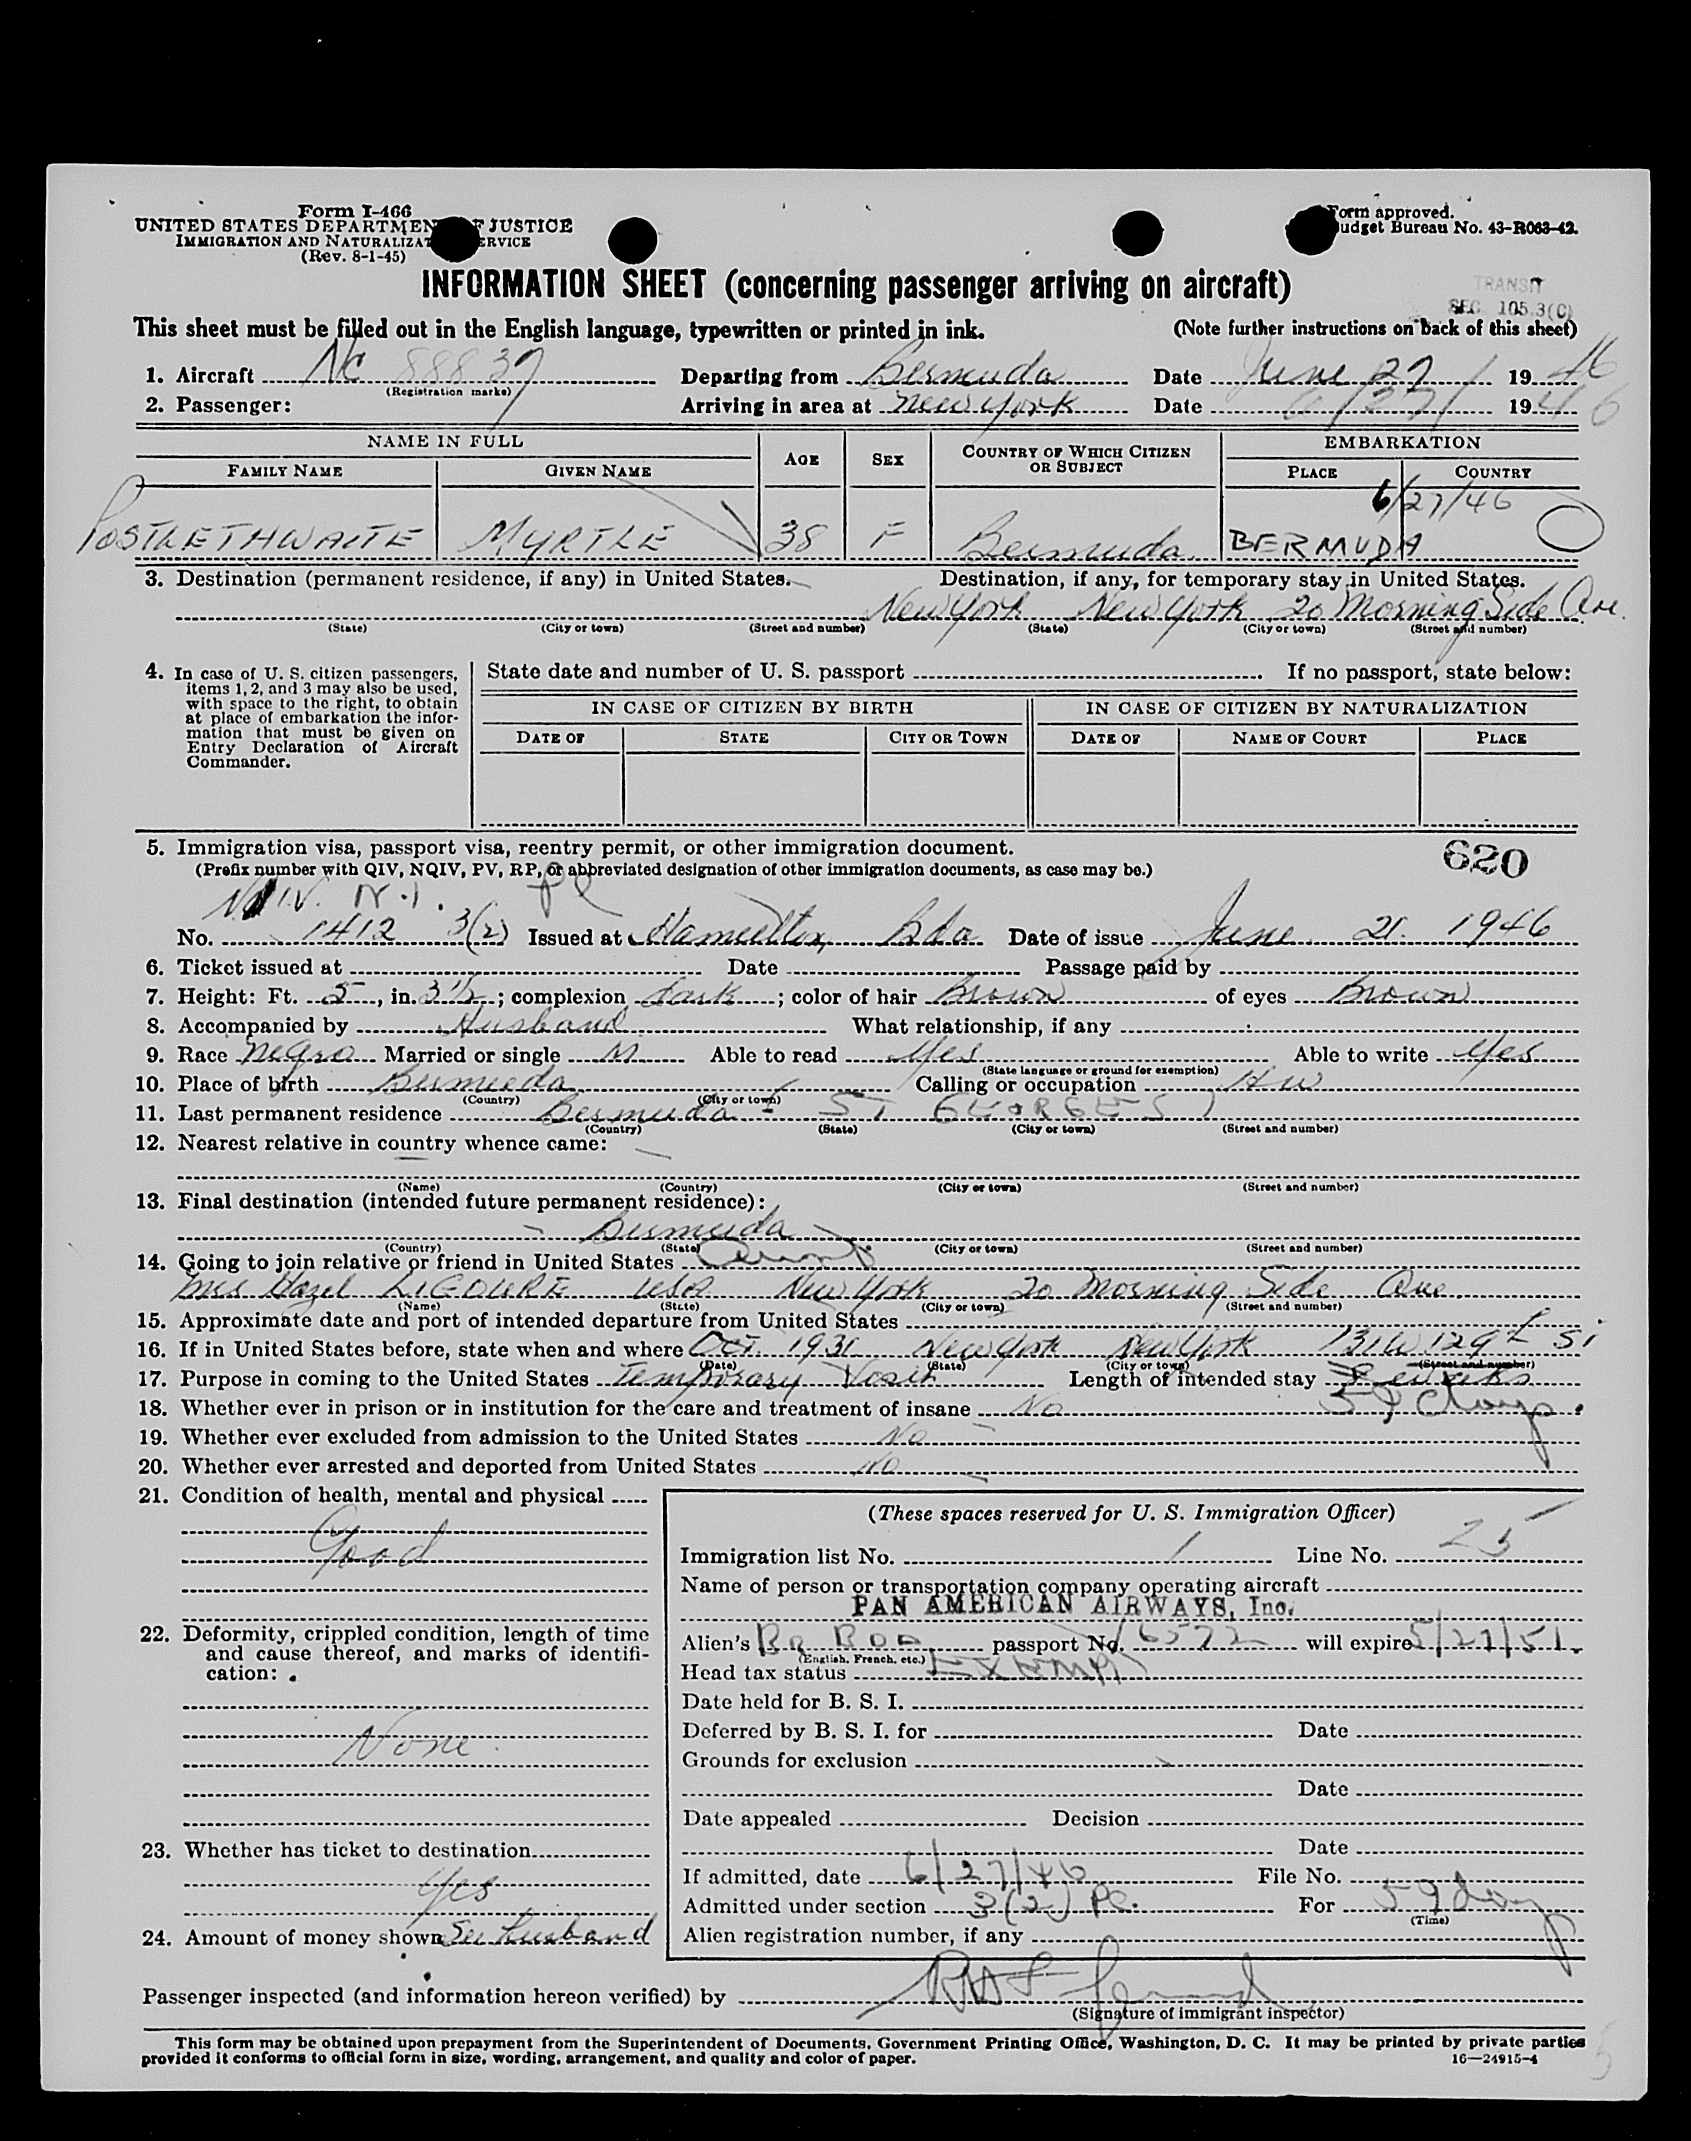 Form I-466
UNITED STATES DEPARTMEN F JUSTICE
IMMIGRATION AND NATURALIZAT ERVICE
(Rev. 8-1-45)
Form approved.
udget Bureau No. 43-R063-42.
INFORMATION SHEET (concerning passenger arriving on aircraft)
TRANSIT
SEC. 105.3(C)
This sheet must be filled out in the English language, typewritten or printed in ink. (Note further instructions on back of this sheet)
1. Aircraft Nc 88837 Departing from Bermuda Date June 27 1946
(Registration marks)
2. Passenger: Arriving in area at New York Date 6/27/ 1946
NAME IN FULL AGE SEX COUNTRY OF WHICH CITIZEN OR SUBJECT EMBARKATION
FAMILY NAME GIVEN NAME PLACE COUNTRY
6/27/46
POSTLETHWAITE MYRTLE 38 F Bermuda BERMUDA
3. Destination (permanent residence, if any) in United States. Destination, if any, for temporary stay in United States.
New York New York 20 Morning Side Ave.
(State) (City or town) (Street and number) (State) (City or town) (Street and number)
4. In case of U. S. citizen passengers, items 1, 2, and 3 may also be used, with space to the right, to obtain at place of embarkation the information that must be given on Entry Declaration of Aircraft Commander.
State date and number of U. S. passport If no passport, state below:
IN CASE OF CITIZEN BY BIRTH IN CASE OF CITIZEN BY NATURALIZATION
DATE OF STATE CITY OR TOWN DATE OF NAME OF COURT PLACE
5. Immigration visa, passport visa, reentry permit, or other immigration document. 620
(Prefix number with QIV, NQIV, PV, RP, or abbreviated designation of other immigration documents, as case may be.)
No. 1412 3(2) Issued at Hamilton, Bda Date of issue June 21. 1946
6. Ticket issued at Date Passage paid by
7. Height: Ft. 5, in. 3 1/2; complexion dark; color of hair Brown of eyes Brown
8. Accompanied by Husband What relationship, if any
9. Race Negro Married or single M Able to read Yes Able to write Yes
(State language or ground for exemption)
10. Place of birth Bermuda Calling or occupation HW
(Country) (City or town)
11. Last permanent residence Bermuda - ST GEORGES
(Country) (State) (City or town) (Street and number)
12. Nearest relative in country whence came:
(Name) (Country) (City or town) (Street and number)
13. Final destination (intended future permanent residence):
Bermuda
(Country) (State) (City or town) (Street and number)
14. Going to join relative or friend in United States Aunt
Mrs Hazel LIGOURE USA New York 20 Morning Side Ave.
(Name) (State) (City or town) (Street and number)
15. Approximate date and port of intended departure from United States
16. If in United States before, state when and where Oct. 1931 New York New York 131 W 129th St
(Date) (State) (City or town) (Street and number)
17. Purpose in coming to the United States Temporary Visit Length of intended stay 8 weeks
59 days
18. Whether ever in prison or in institution for the care and treatment of insane No
19. Whether ever excluded from admission to the United States No
20. Whether ever arrested and deported from United States No
21. Condition of health, mental and physical
Good
22. Deformity, crippled condition, length of time and cause thereof, and marks of identification:
None
23. Whether has ticket to destination
Yes
24. Amount of money shown See husband
(These spaces reserved for U. S. Immigration Officer)
Immigration list No. 1 Line No. 25
Name of person or transportation company operating aircraft
PAN AMERICAN AIRWAYS, Inc.
Alien's passport No. 16572 will expire 5/27/51.
(English, French, etc.)
Head tax status EXEMPT
Date held for B. S. I.
Deferred by B. S. I. for Date
Grounds for exclusion
Date
Date appealed Decision
Date
If admitted, date 6/27/46 File No.
Admitted under section 3(2) PC. For 59 days
(Time)
Alien registration number, if any
Passenger inspected (and information hereon verified) by
(Signature of immigrant inspector)
This form may be obtained upon prepayment from the Superintendent of Documents, Government Printing Office, Washington, D. C. It may be printed by private parties
provided it conforms to official form in size, wording, arrangement, and quality and color of paper. 16—24915-4